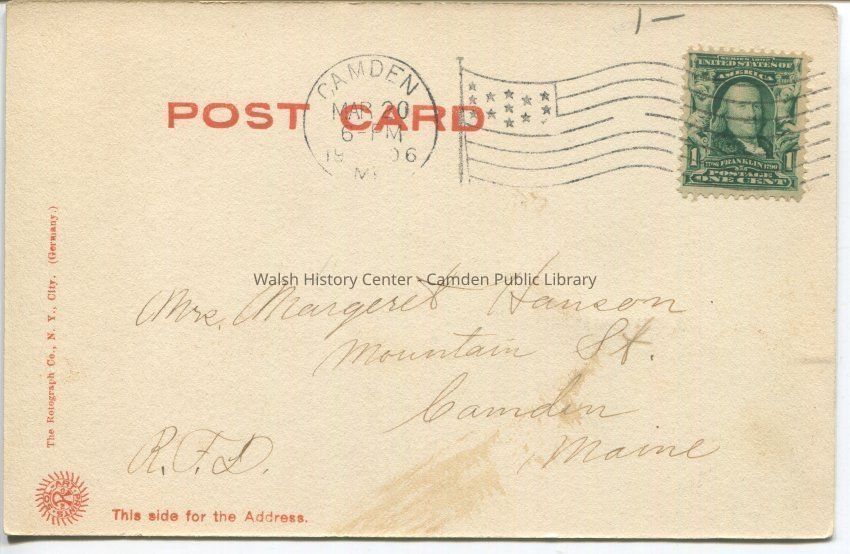 1-
CAMDEN
MAR 20
6-PM
1906
ME
POST CARD
SERIES 1902
UNITED STATES OF
AMERICA
1 1706 FRANKLIN 1790 1
POSTAGE
ONE CENT
Walsh History Center - Camden Public Library
Mrs. Margeret Hanson
Mountain St.
Camden
Maine
R.F.D.
The Rotograph Co., N. Y., City. (Germany.)
SOL-ART PRINTS
This side for the Address.